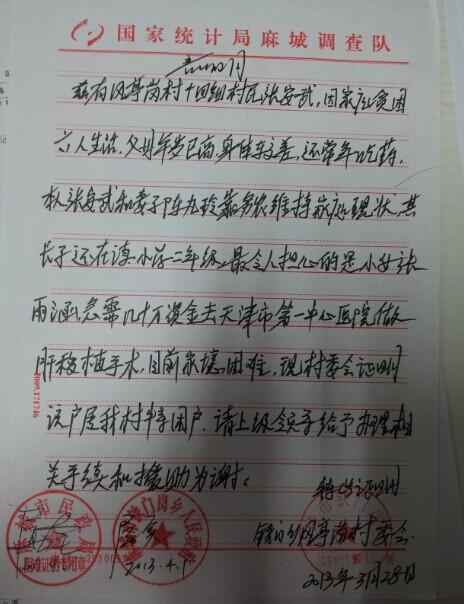 国家统计局麻城调查队
证明
兹有凤亭岗村十四组村民张安武,因家庭贫困
六人生活,父母年岁已高,身体较差,还常年吃药,
张安武和妻子陈九玲务农维持家庭现状,其
长子还在读小学二年级,最令人担心的是小女张
雨涵急需几十万资金去天津市第一中心医院做
肝移植手术,目前家境困难,现村委会证明
该户属我村特困户,请上级领导给予办理相
关手续和援助为谢!
特此证明
乡凤亭岗村委会
2013年3月28日
2013.4.1
2009.171746
市民政局
门岗乡人民政府